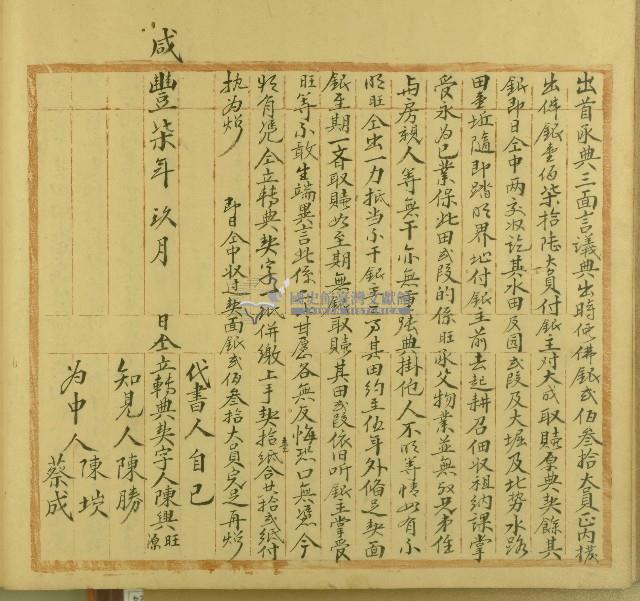 出首承典三面言議典出時價佛銀弍佰叁拾大員正內撥
出佛銀壹佰柒拾陆大員付銀主对大成取贖原典契餘其
銀即日仝中両交收訖其水田及园弍段及大堀及北势水路
田壹坵隨即踏明界址付銀主前去起耕召佃収租納課掌
受永為己業保此田弍段的係旺承父物業並無叔兄弟侄
与房親人等無干亦無重張典掛他人不明等情如有不
明旺仝出一力抵当不干銀主之事其田約至伍年外俻足契面
銀至期一齐取贖如至期無銀取贖其田弍段依旧听銀主掌受
旺等不敢生端異言此係二比甘愿各無反悔恐口無憑今
欲有凴仝立轉典契字一紙併繳上手契拾壹紙合共拾弍紙付
执为炤　即日仝中収过契面銀弍佰叁拾大員完足再炤
代書人自己
咸豐柒年玖月　日仝立轉典契字人陳興旺源
知見人陳勝
為中人陳㙡
蔡成
國史館臺灣文獻館
TAIWAN HISTORICA